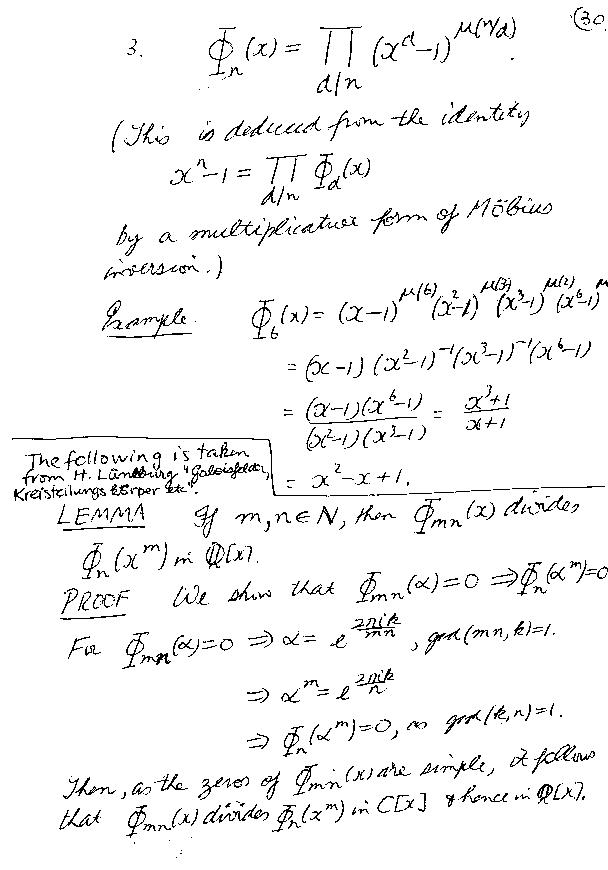 (30
3. Φₙ(x) = ∏_{d/n} (x^d − 1)^{μ(n/d)}.
(This is deduced from the identity
xⁿ − 1 = ∏_{d/n} Φ_d(x)
by a multiplicative form of Möbius
inversion.)
Example. Φ₆(x) = (x−1)^{μ(6)} (x²−1)^{μ(3)} (x³−1)^{μ(2)} (x⁶−1)^μ
= (x−1)(x²−1)⁻¹(x³−1)⁻¹(x⁶−1)
= (x−1)(x⁶−1) / (x²−1)(x³−1) = x³+1 / x+1
= x²−x+1.
The following is taken
from H. Lüneburg "Galoisfelder,
Kreisteilungskörper etc".
LEMMA If m,n∈N, then Φ_{mn}(x) divides
Φₙ(x^m) in Q[x].
PROOF We show that Φ_{mn}(α)=0 ⇒ Φₙ(α^m)=0
For Φ_{mn}(α)=0 ⇒ α = e^{2πik/mn}, gcd(mn,k)=1.
⇒ α^m = e^{2πik/n}
⇒ Φₙ(α^m)=0, as gcd(k,n)=1.
Then, as the zeros of Φ_{mn}(x) are simple, it follows
that Φ_{mn}(x) divides Φₙ(x^m) in C[x] & hence in Q[x].